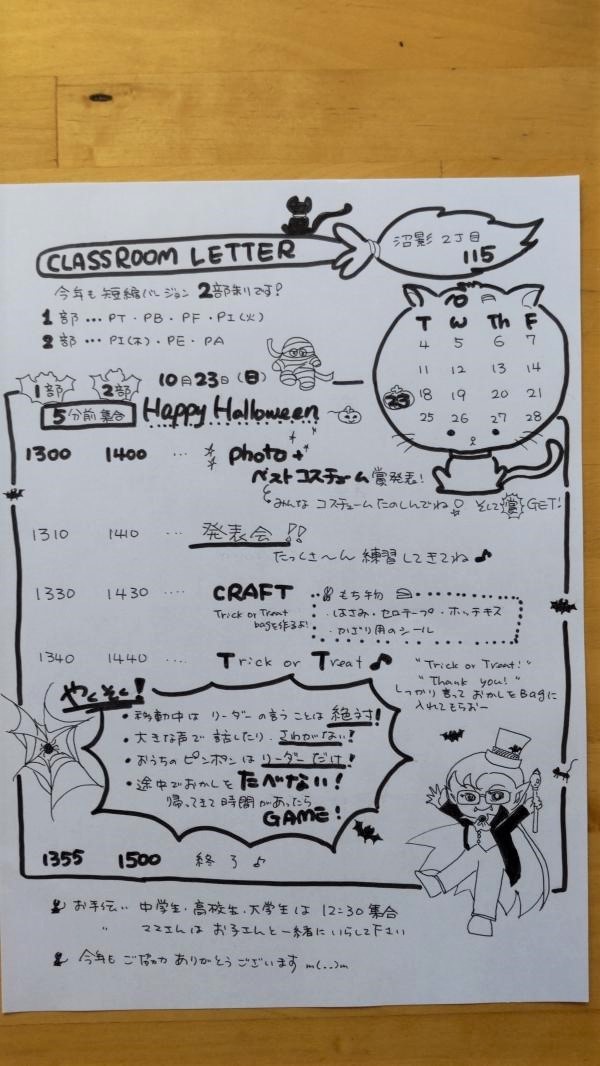 CLASSROOM LETTER
沼影 2丁目
115
今年も 短縮バージョン 2部制です!
1部 ・・・ PT・PB・PF・PI(火)
2部 ・・・ PI(木)・PE・PA
10月
T W Th F
4 5 6 7
11 12 13 14
18 19 20 21
23
25 26 27 28
1部 2部 10月23日(日)
5分前 集合 Happy Halloween
1300 1400 ・・・ photo +
ベスト コスチューム賞 発表!
みんな コスチューム たのしんでね! そして賞GET!
1310 1410 ・・・ 発表会!!
たっくさ〜ん 練習してきてね♪
1330 1430 ・・・ CRAFT
Trick or Treat
bagを作るよ!
もち物
・はさみ・セロテープ・ホッチキス
・かざり用のシール
1340 1440 ・・・・ Trick or Treat ♪
"Trick or Treat!"
"Thank you!"
しっかり言って おかしをBagに
入れてもらおー
やくそく!
・移動中は リーダーの言うことは 絶対!
・大きな声で 話したり、さわがない!
・おうちの ピンポンは リーダーだけ!
・途中でおかしを たべない!
帰ってきて時間があったら
GAME!
1355 1500 終了♪
お手伝い 中学生・高校生・大学生は 12:30 集合
〃 ママさんは お子さんと一緒に いらして下さい
今年も ご協力 ありがとうございます m(..)m